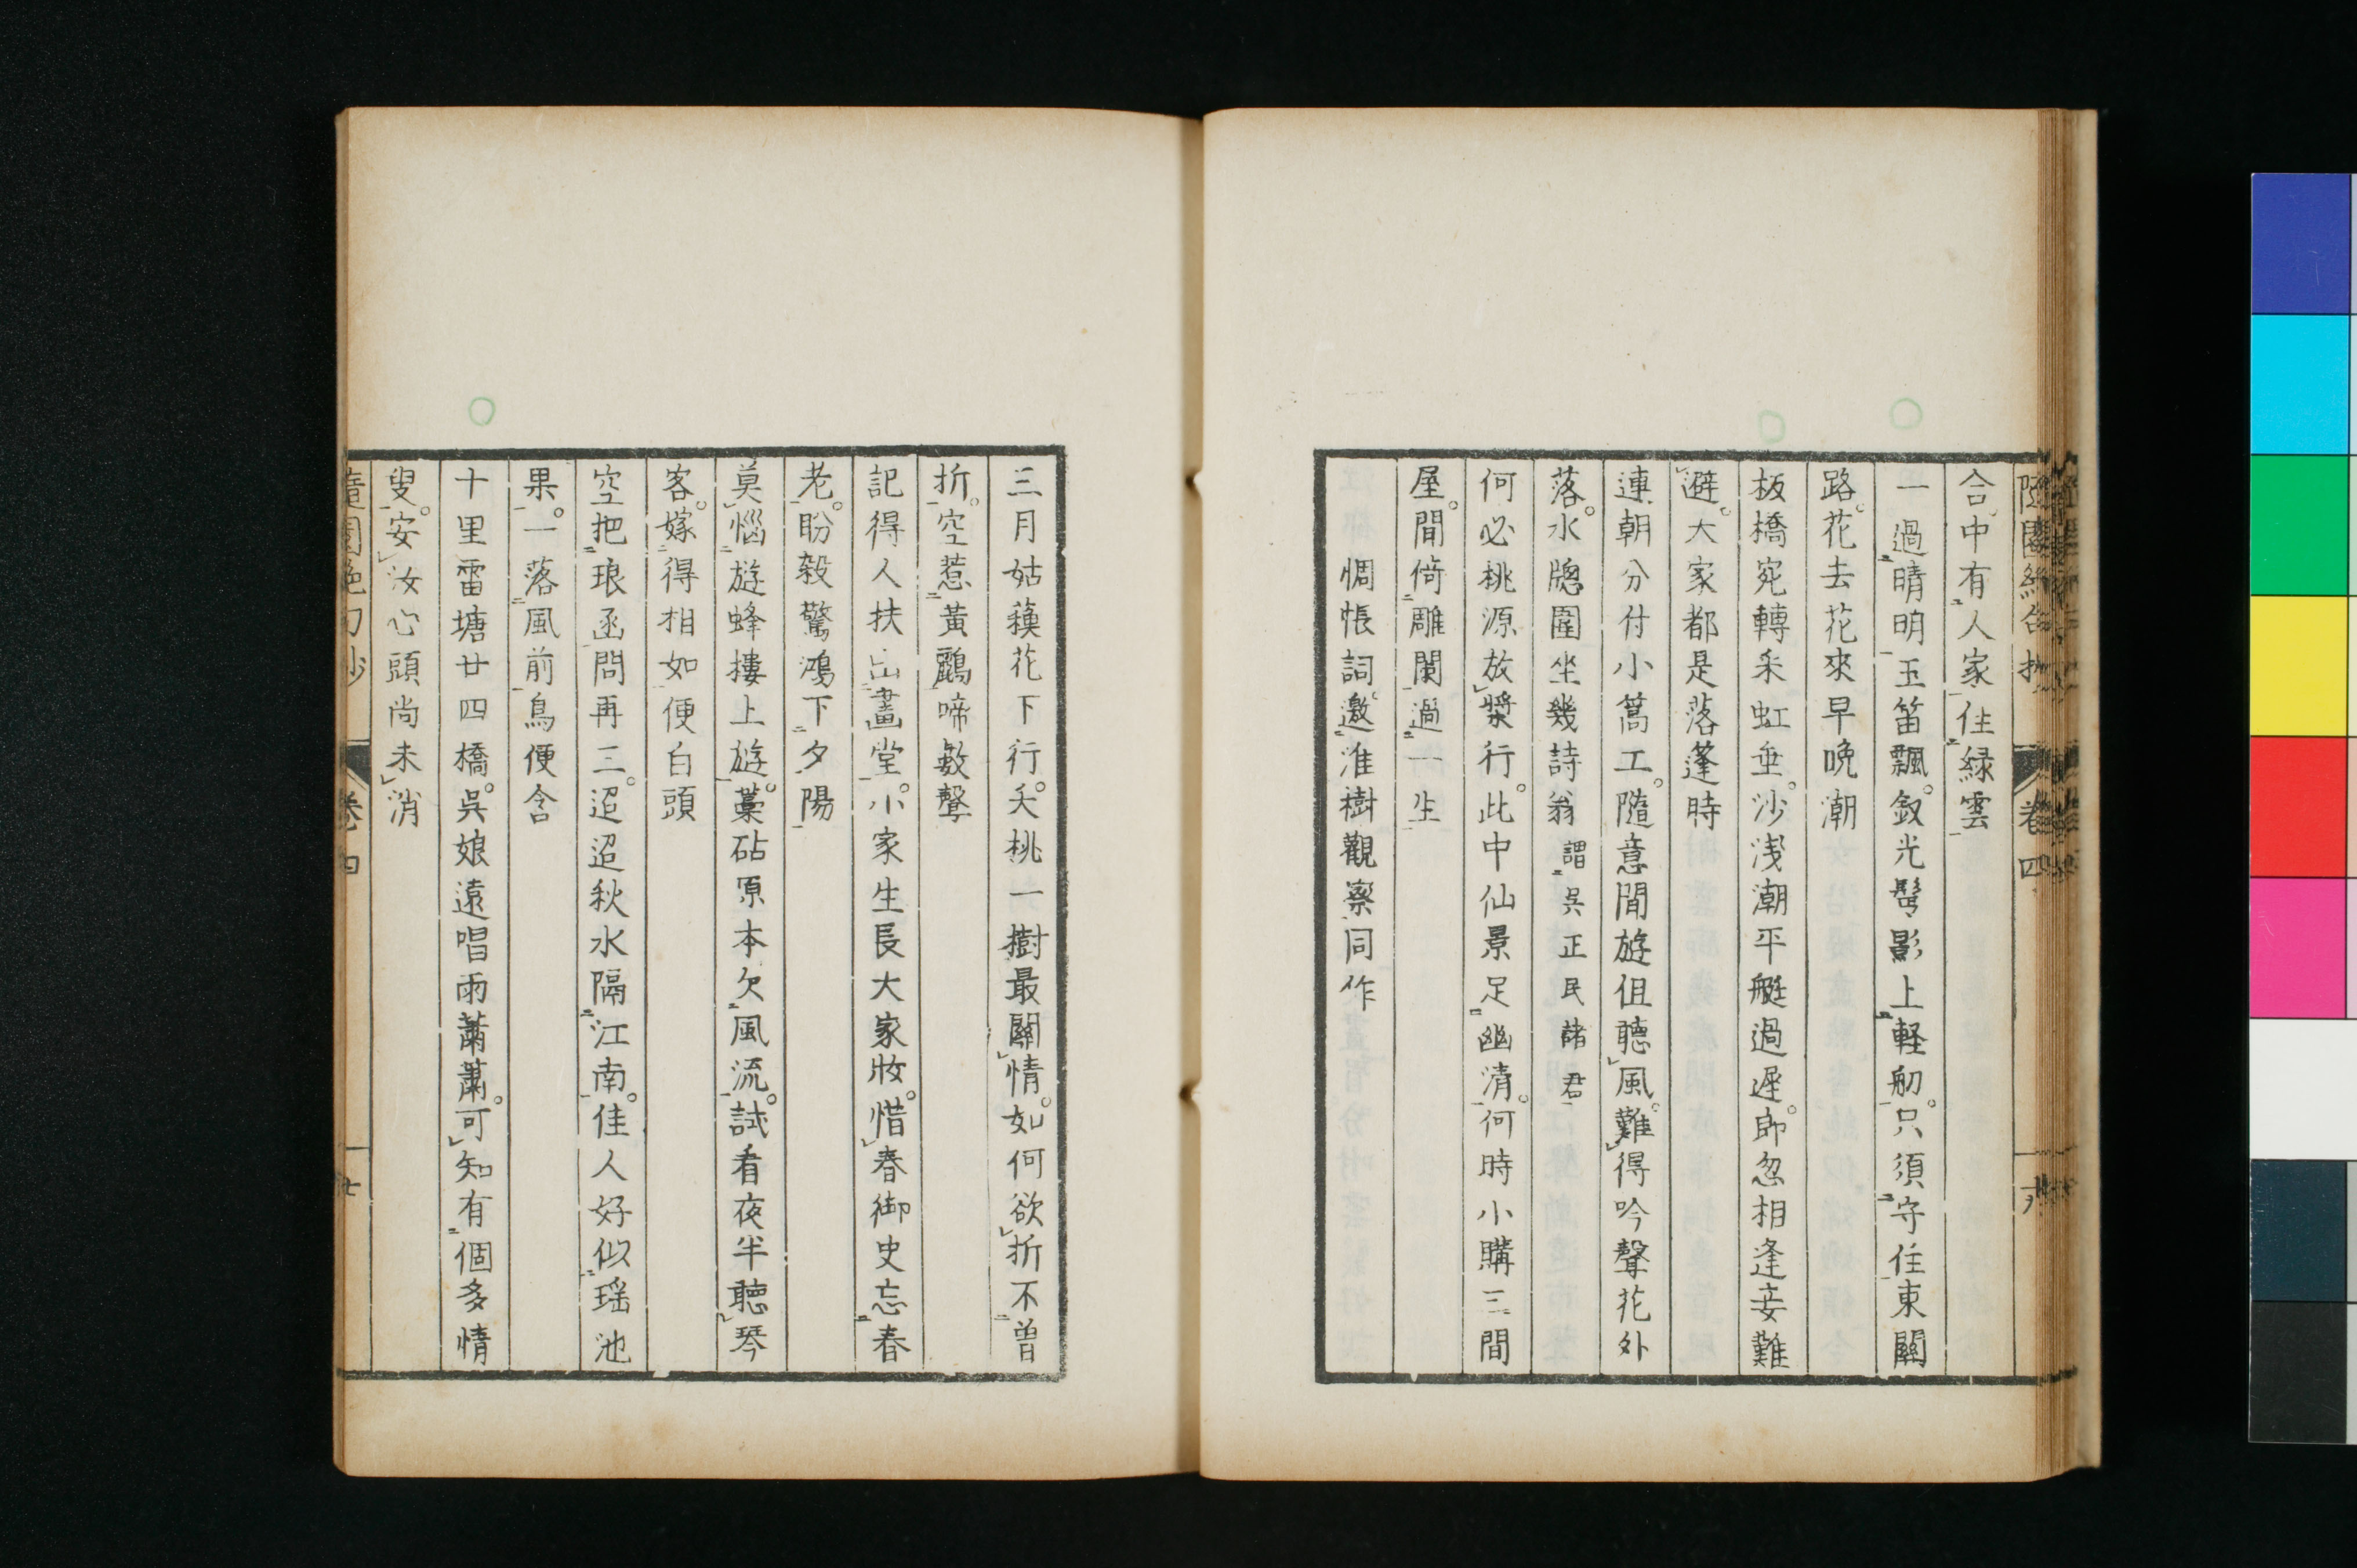 合中有人家住緑雲
一過晴明玉笛飄釵光鬢影上軽舠只須守住東關
路花去花來早晚潮
板橋宛轉采虹垂沙浅潮平艇過遲郎忽相逢妾難
避大家都是落蓬時
連朝分付小篙工隨意閒遊但聽風難得吟聲花外
落水牕圍坐幾詩翁 謂吳正民諸君
何必桃源放槳行此中仙景足幽清何時小購三間
屋閒倚雕闌過一生
惆悵詞邀淮樹觀察同作
卷四
三月姑蘓花下行夭桃一樹最關情如何欲折不曽
折空惹黃鸝啼數聲
記得人扶出畵堂小家生長大家妝惜春御史忘春
老盼殺驚鴻下夕陽
莫惱遊蜂摟上遊藁砧原本欠風流試看夜半聴琴
客嫁得相如便白頭
空把琅函問再三迢迢秋水隔江南佳人好似瑶池
果一落風前鳥便含
十里雷塘廿四橋吳娘遠唱雨蕭蕭可知有個多情
叟安汝心頭尚未消
隨園絶句抄 卷四